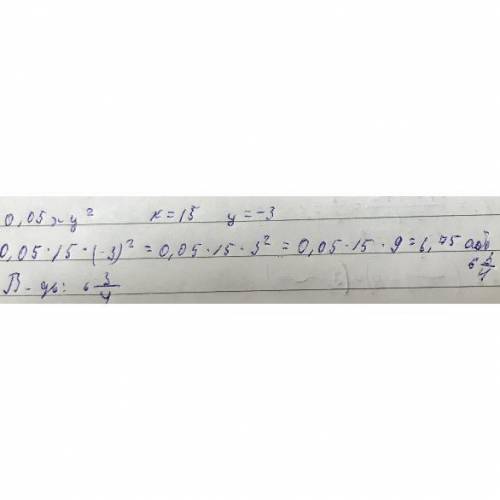 0,05xy² x=15 y=-3
0,05·15·(-3)² = 0,05·15·3² = 0,05·15·9=6,75 або 6 3/4
В-дь: 6 3/4